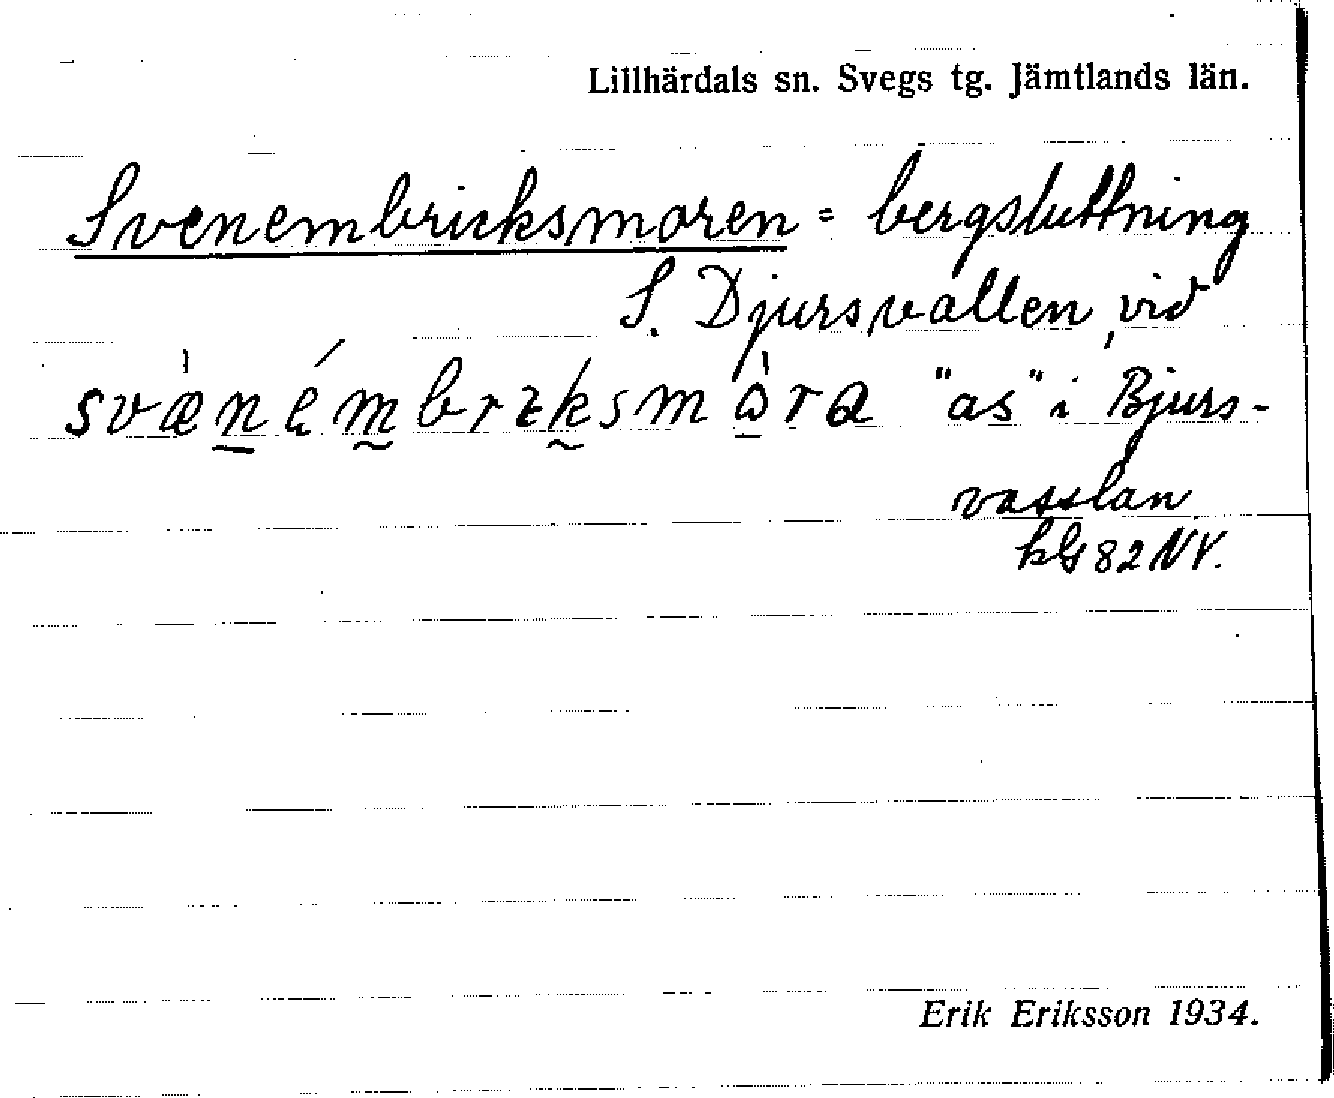 Lillhärdals sn. Svegs tg. Jämtlands län.
Svenembricksmoren = bergsluttning
S. Djursvallen, vid
svæ̀némbrɪksmɷ̀ra "as" i Bjurs-
vasslan
kG 82 NV.
Erik Eriksson 1934.